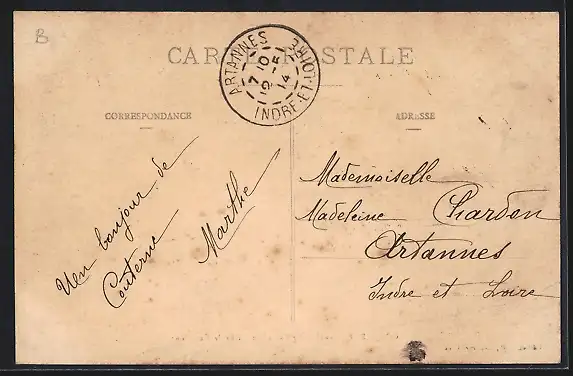 B
CARTE POSTALE
ARTANNES
INDRE-ET-LOIRE
7 10
12 -5
14
CORRESPONDANCE
ADRESSE
Un bonjour de
Couterne
Marthe
Mademoiselle
Madeleine Chardon
Artannes
Indre et Loire